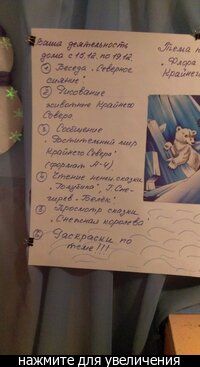 Ваша деятельность
дома с 15.12. по 19.12.
① Беседа „Северное
сияние"
② Рисование
животные Крайнего
Севера
③ Сообщение
„Растительный мир
Крайнего Севера"
(формат А-4)
④ Чтение ненец. сказки
„Голубика", Г. Сне-
гирев „Белёк".
⑤ Просмотр сказки
Снежная королева
⑥ Раскраски по
теме!!!
Тема
„Флора
Крайнего
нажмите для увеличения